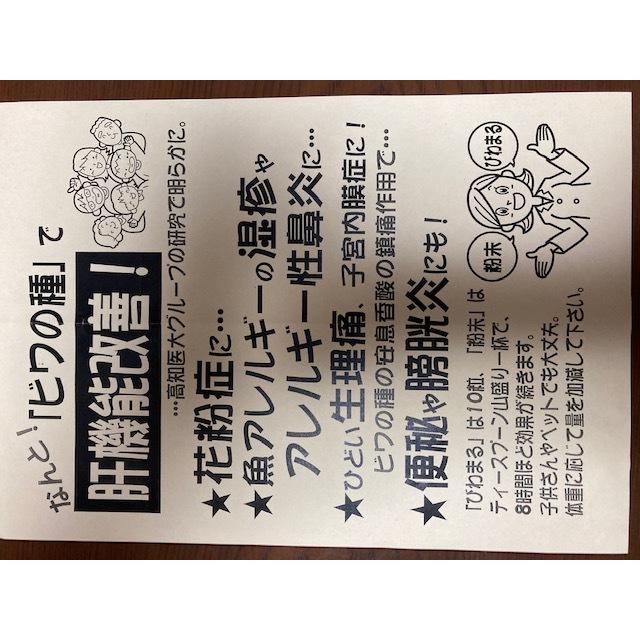 なんと！「ビワの種」で
肝機能改善！
…高知医大グループの研究で明らかに。
★花粉症に…
★魚アレルギーの湿疹や
アレルギー性鼻炎に…
★ひどい生理痛、子宮内膜症に！
ビワの種の安息香酸の鎮痛作用で…
★便秘や膀胱炎にも！
「びわまる」は10粒、「粉末」は
ティースプーン山盛り一杯で、
8時間ほど効果が続きます。
子供さんやペットでも大丈夫。
体重に応じて量を加減して下さい。
粉末
びわまる